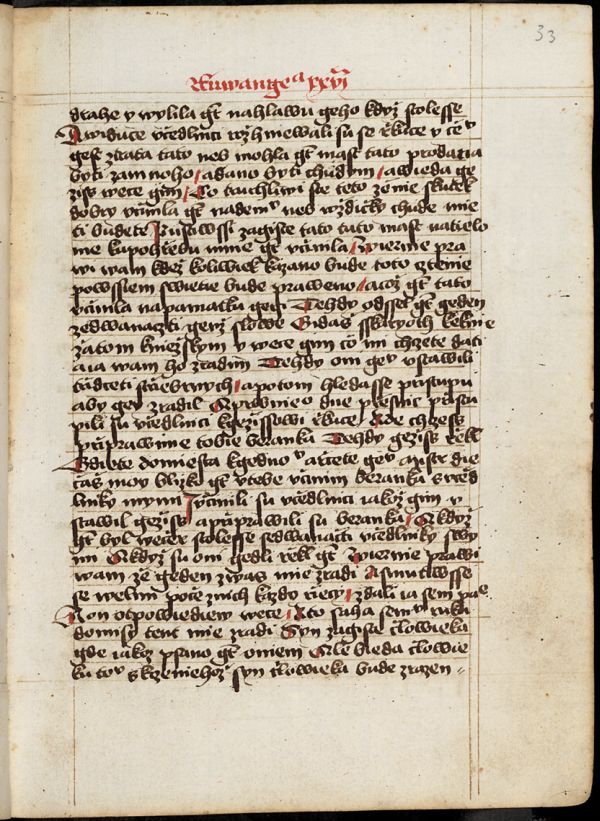 33
Ewange^a xxvi
drahe y wylila gt nahlawu geho kdyż stolesse
A widuce vċedlnici rozhniewali su se ṙkuce y cė^v
gest ztrata tato neb mohla gt mast tato prodana
byti zamnoho / adano byti chudym / awieda ge
zijs wece gim / Co tauchliwi ste teto zenie skutek
dobry vċinila gt nademʳ neb wzdicky chude mie
ti budete Pustiwssi zagiste tato tuto mast natielo
me kupohrebu mme gt vċinila / wiernie pra
wi wam kdeż koliwiek kazano bude toto cztenie
powssiem swietie bude praweno / acoż gt tato
vċinila napamatku gegi Tehdy odssel gt geden
zedwanaczti genż slowe Gidaś sskaryoth k knie
żatom knieżskym y wece gim co mi chzete dati
aia wam ho zradim Tehdy oni gev vstawili
tṙidceti stṙiebrnych / apotom hledasse pristupu
aby gey zradil Sprwnieo dne presnic pristu
pili su vċedlnici kgezissowi ṙkuce Kde chzess
pṙiprawime tobie beranka Tehdy geziss ṙekl
Gdiete domiesta kgednoᵛ aṙcete gev mistr die
ċas moy blizko gt vtebe vċinim beranka s vċed
lniky mymi / vċinili su vċedlnici iakoż gim v
stawil geziss apṙiprawili su beranka / A kdyż
gt byl weċer stolesse sedwanaċti vċedlniky swy
mi A kdyż su oni gedli ṙekl gt wiernie prawi
wam że geden zwas mie zradi A smutiwsse
se welmi poċe znich każdy ṙieci / zdali ia sem pa^e
A on otpowiediew wece / Kto saha semʳ ruku
domisy tent mie zradi Syn zagiste ċlowieka
gde iakoż psano gt oniem Ale bieda ċlowie
ku toᵛ skrzeniehoż syn ċlowieka bude zrazen